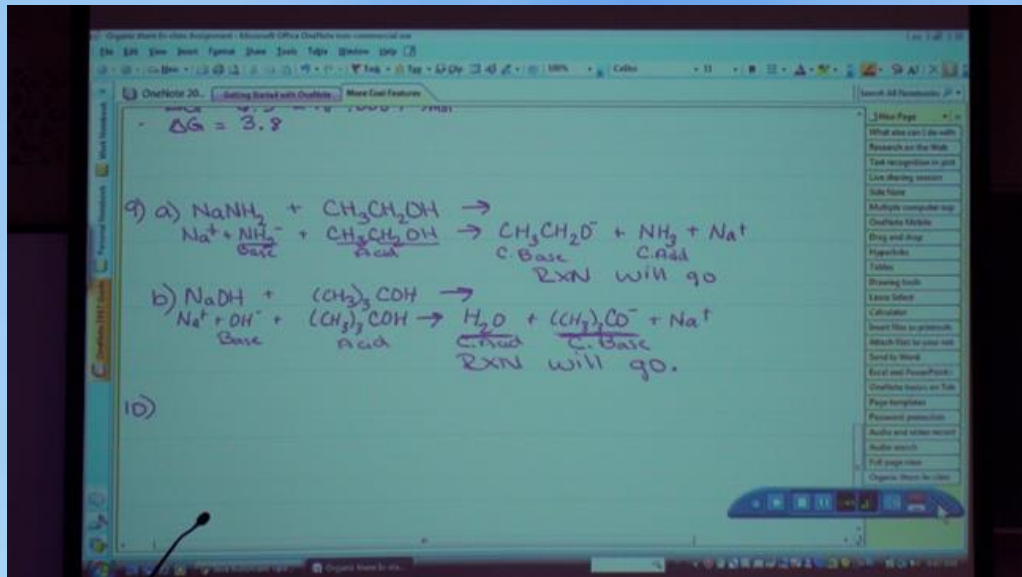 Organic Share In-class Assignment - Microsoft Office OneNote non-commercial use
File Edit View Insert Format Share Tools Table Window Help
New
Tag
100%
Calibri
11
OneNote 20..
Getting Started with OneNote
More Cool Features
Search All Notebooks
Work Notebook
Personal Notebook
OneNote 2007 Guide
- ΔG = 3.8
9) a) NaNH₂ + CH₃CH₂OH →
Na⁺ + NH₂⁻ + CH₃CH₂OH → CH₃CH₂O⁻ + NH₃ + Na⁺
Base Acid C. Base C. Acid
RXN will go
b) NaOH + (CH₃)₃COH →
Na⁺ + OH⁻ + (CH₃)₃COH → H₂O + (CH₃)₃CO⁻ + Na⁺
Base Acid C. Acid C. Base
RXN will go.
10)
New Page
What else can I do with
Research on the Web
Text recognition in pict
Live sharing session
Side Note
Multiple computer sup
OneNote Mobile
Drag and drop
Hyperlinks
Tables
Drawing tools
Lasso Select
Calculator
Insert files as printouts
Attach files to your not
Send to Word
Excel and PowerPoint
OneNote basics on Tab
Page templates
Password protection
Audio and video record
Audio search
Full page view
Organic Share In-class